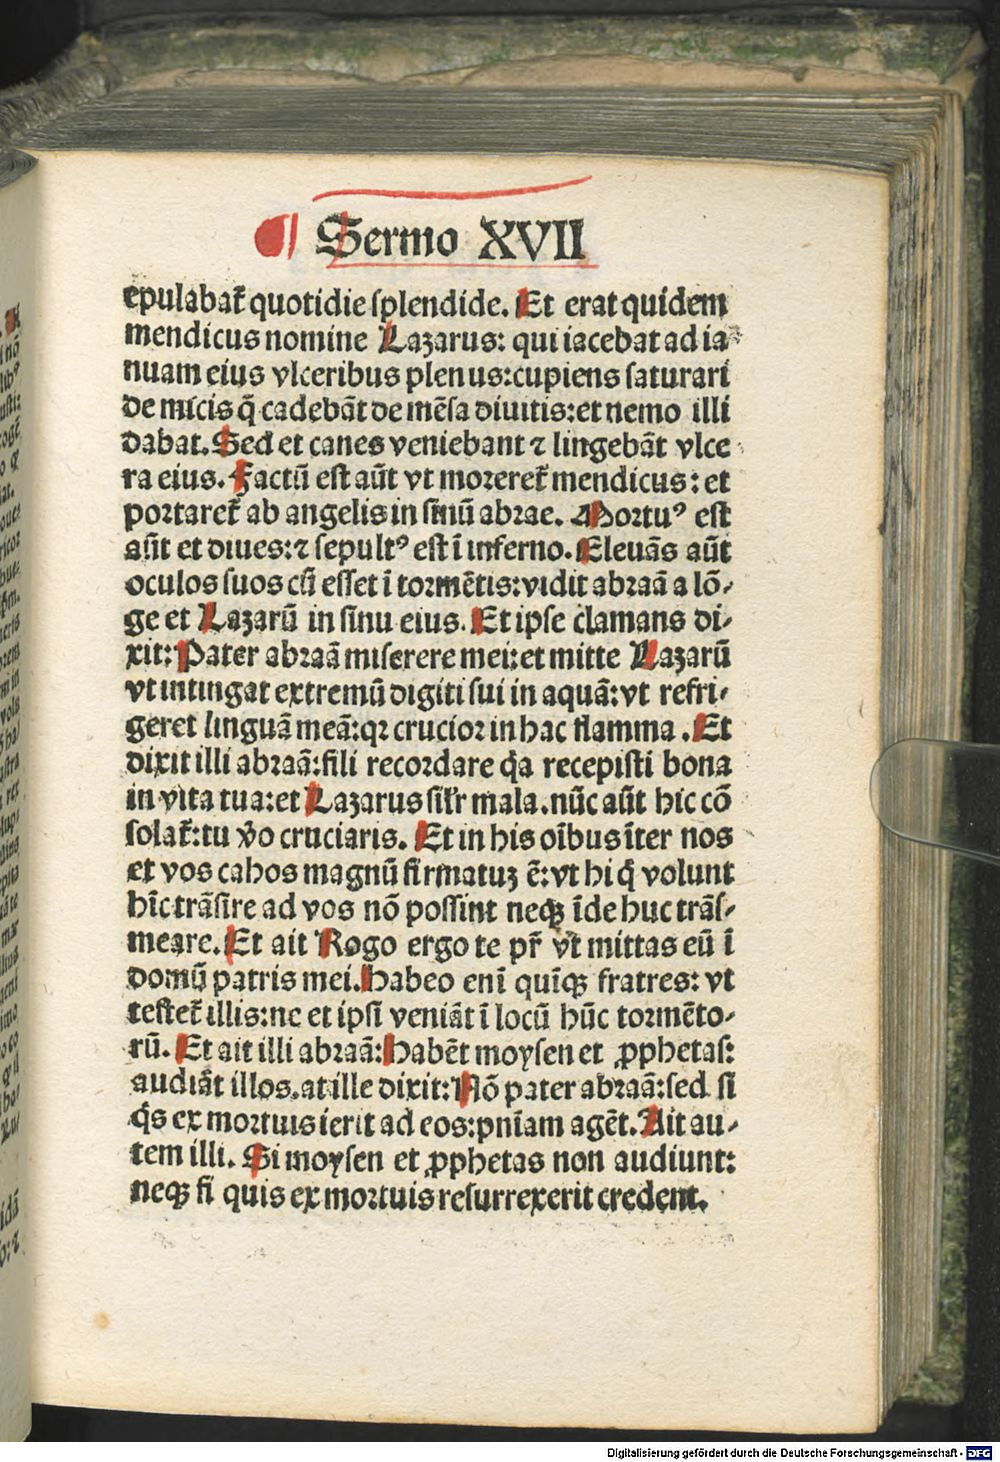 ¶ Sermo XVII
epulabat᷑ quotidie ſplendide. Et erat quidem
mendicus nomine Lazarus: qui iacebat ad ia⸗
nuam eius vlceribus plenus:cupiens ſaturari
de micis q̄ cadebāt de mēſa diuitis:et nemo illi
dabat. Sed et canes veniebant ⁊ lingebāt vlce
ra eius. Factū eſt aūt vt moreret᷑ mendicus: et
portaret᷑ ab angelis in ſinū abrae. Mortuꝰ eſt
aūt et diues:⁊ ſepultꝰ eſt ī inferno. Eleuās aūt
oculos ſuos cū eſſet ī tormētis:vidit abraā a lō⸗
ge et Lazarū in ſinu eius. Et ipſe clamans di⸗
xit: Pater abraā miſerere mei:et mitte Lazarū
vt intingat extremū digiti ſui in aquā:vt refri⸗
geret linguā meā:qꝛ crucior in hac flamma. Et
dixit illi abraā:fili recordare q̄a recepiſti bona
in vita tua:et Lazarus ſil'r mala.nūc aūt hic cō
ſolat᷑:tu v̄o cruciaris. Et in his oībus īter nos
et vos cahos magnū firmatuʒ ē:vt hi q̄ volunt
hīc trāſire ad vos nō poſſint neqꝫ īde huc trāſ⸗
meare. Et ait Rogo ergo te pr̄ vt mittas eū ī
domū patris mei. Habeo enī quīqꝫ fratres: vt
teſtet᷑ illis:ne et ipſi veniāt ī locū hūc tormēto⸗
rū. Et ait illi abraā: Habēt moyſen et ꝓphetas:
audiāt illos.at ille dixit: Nō pater abraā:ſed ſi
q̄s ex mortuis ierit ad eos:pn̄iam agēt. Ait au⸗
tem illi. Si moyſen et ꝓphetas non audiunt:
neqꝫ ſi quis ex mortuis reſurrexerit credent.
Digitalisierung gefördert durch die Deutsche Forschungsgemeinschaft - DFG